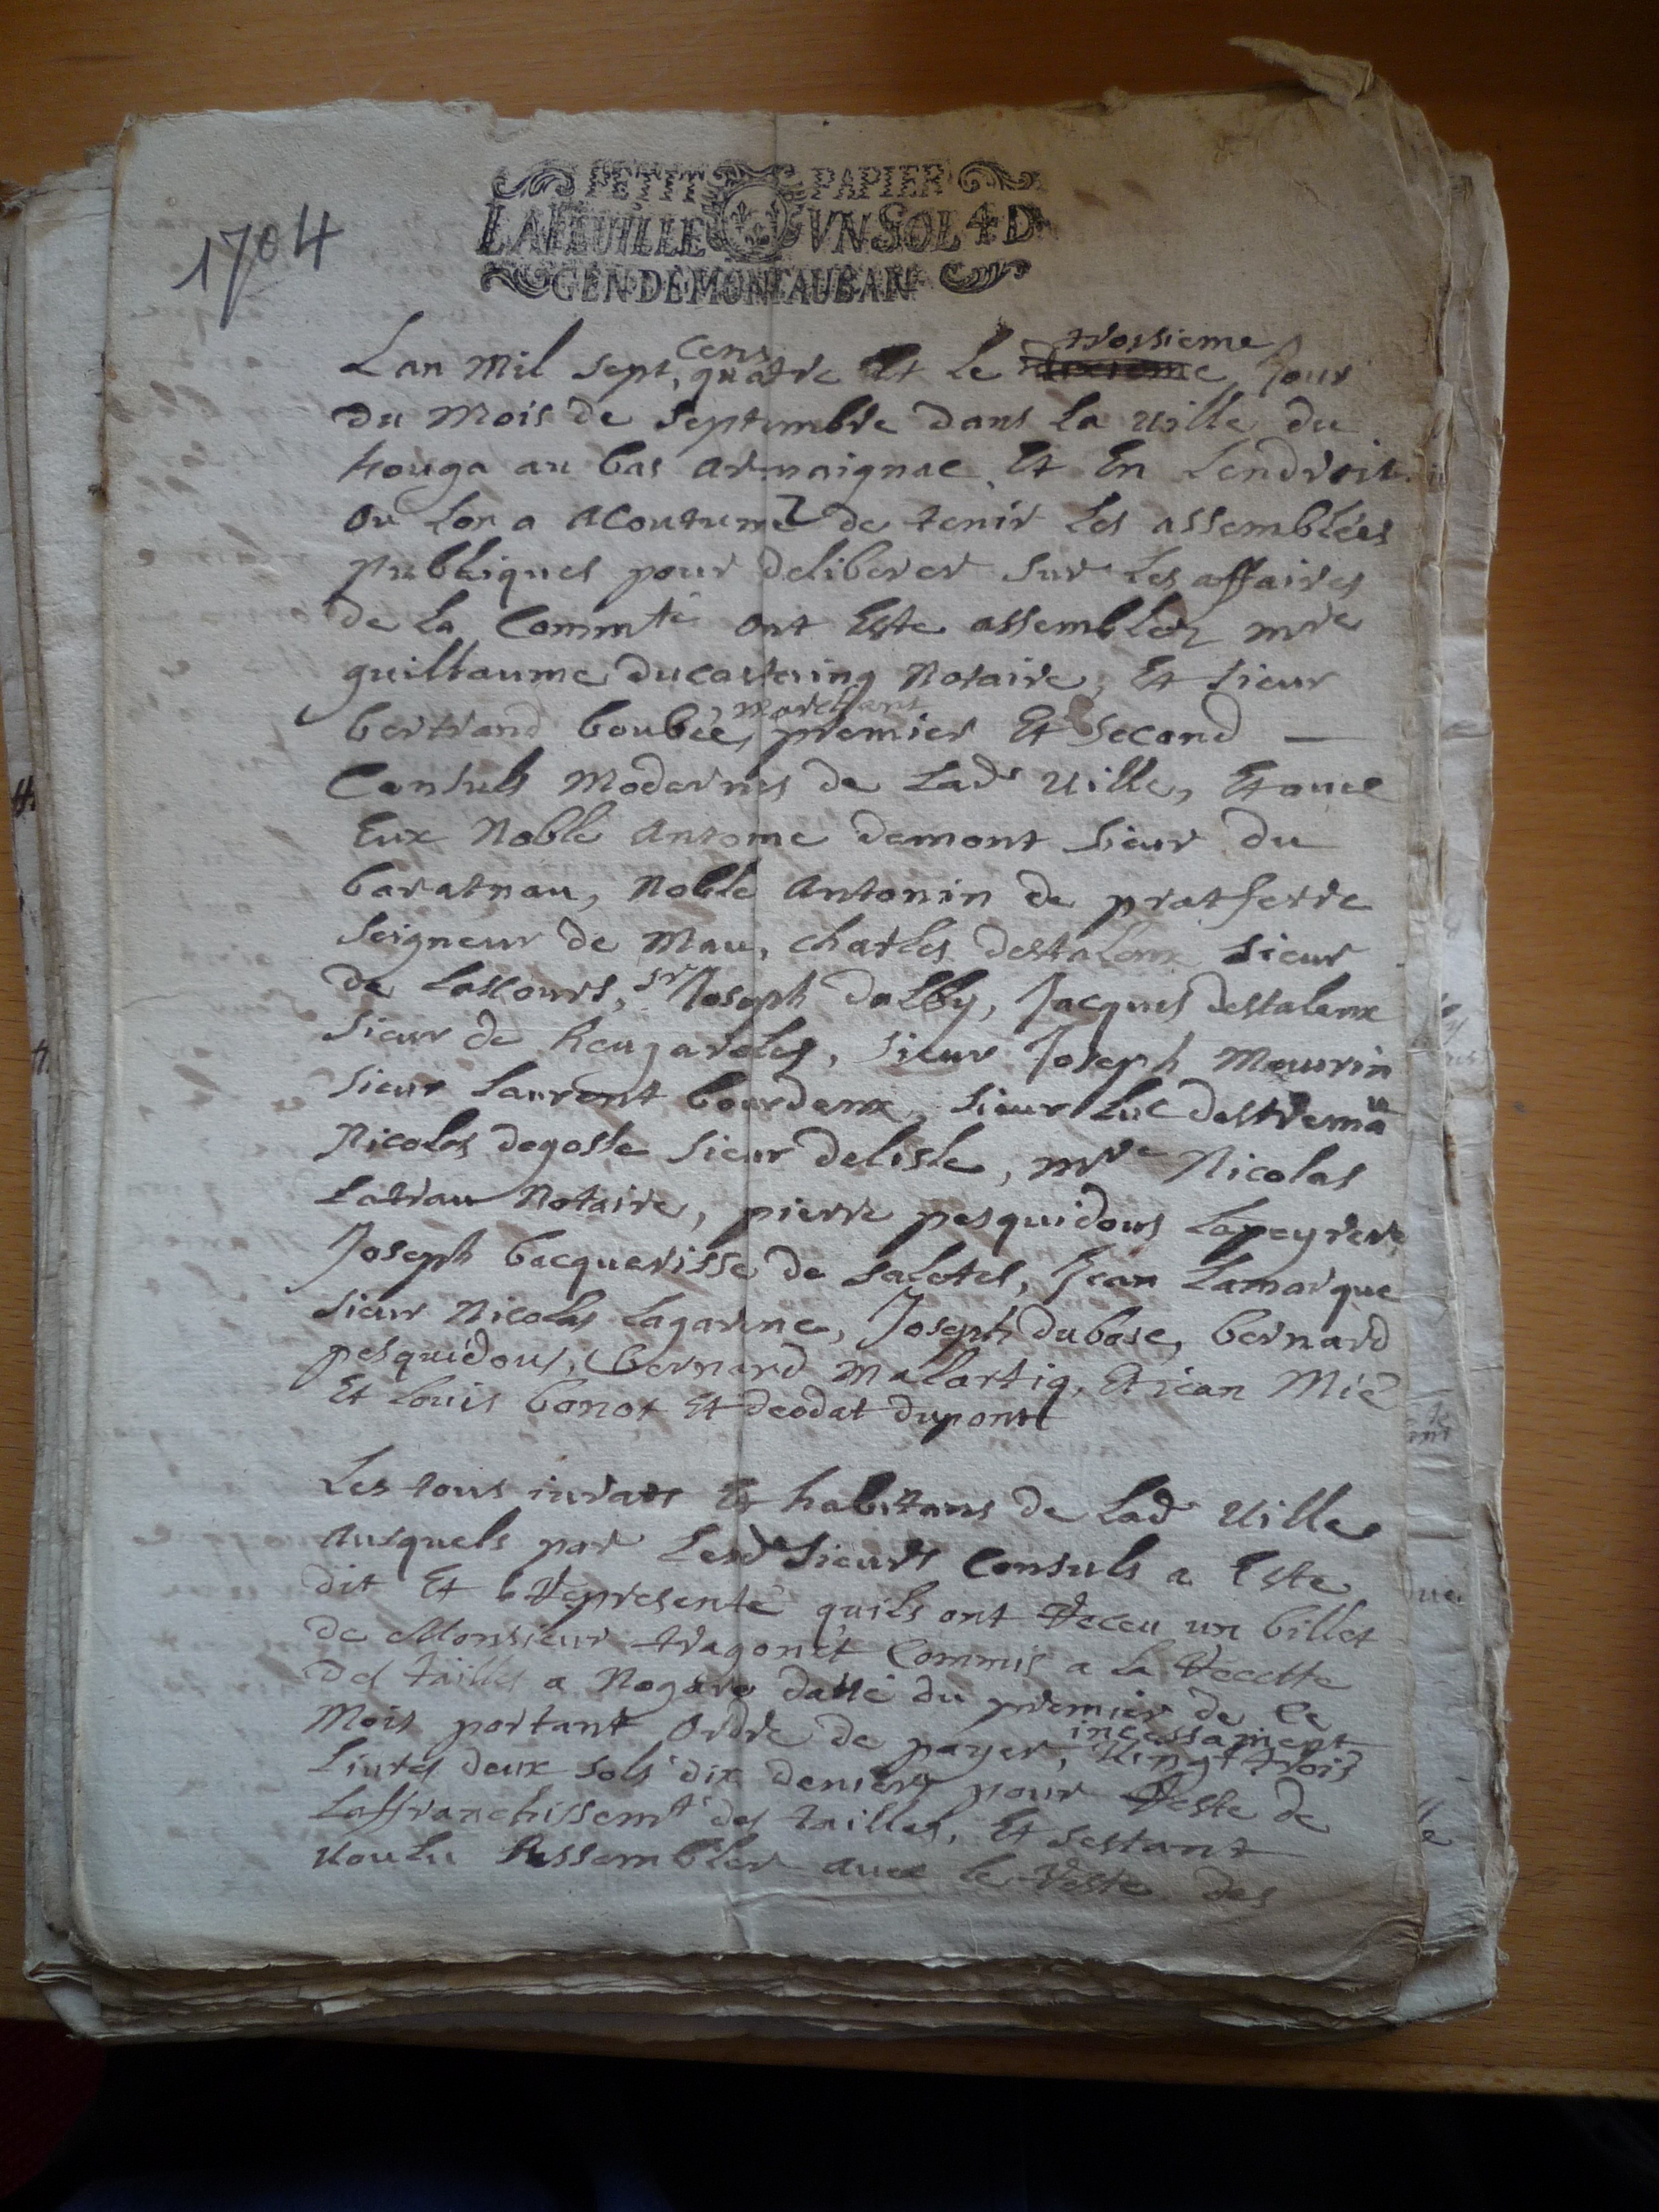 1704
PETIT PAPIER
LA FEUILLE VN SOL 4 D
GEN DE MONTAUBAN
Lan mil sept cens quatre Et le troisieme Jour
du mois de septembre dans la uille du
houga au bas armaignac Et En Lendroit
ou Lon a acoutumé de tenir les assemblées
publiques pour deliberer sur les affaires
de la Commté ont Este assemblez mre
guilhaume ducastaing Notaire, Et sieur
bertrand boubée, marchant premier Et second
Consuls modernes de Lade uille, Et auec
Eux Noble Antoine demont sieur du
baratnau, Noble Antonin de pratferre
seigneur de mau, charles destalenx sieur
de lascours, sr Joseph dalby, Jacques destalenx
sieur de Reugaroles, sieur Joseph Mourin
sieur laurent bourdenx, sieur luc destremau
Nicolas degosle sieur delisle, mre Nicolas
Latrau Notaire, pierre pesquidous Lapeyrere
Joseph bacquerisse de saletes, Jean Lamarque
sieur Nicolas lagarene, Joseph dubosc, bernard
pesquidous, bernard malartiq, Et jean Mié
Et louis bonot Et deodat dupont
Les tous iurats Et habitans de Lad uille
Ausquels par Lesd sieurs Consuls a Este
dit Et Representé quils ont Receu un billet
de Monsieur dragonet Commis a la Recette
des tailles a Nogaro datté du premier de ce
mois portant ordre de payer, incessament uingt trois
liures deux sols dix deniers pour Reste de
Laffranchissemt des tailles, Et sestant
uoulu Assembler auec le Reste des